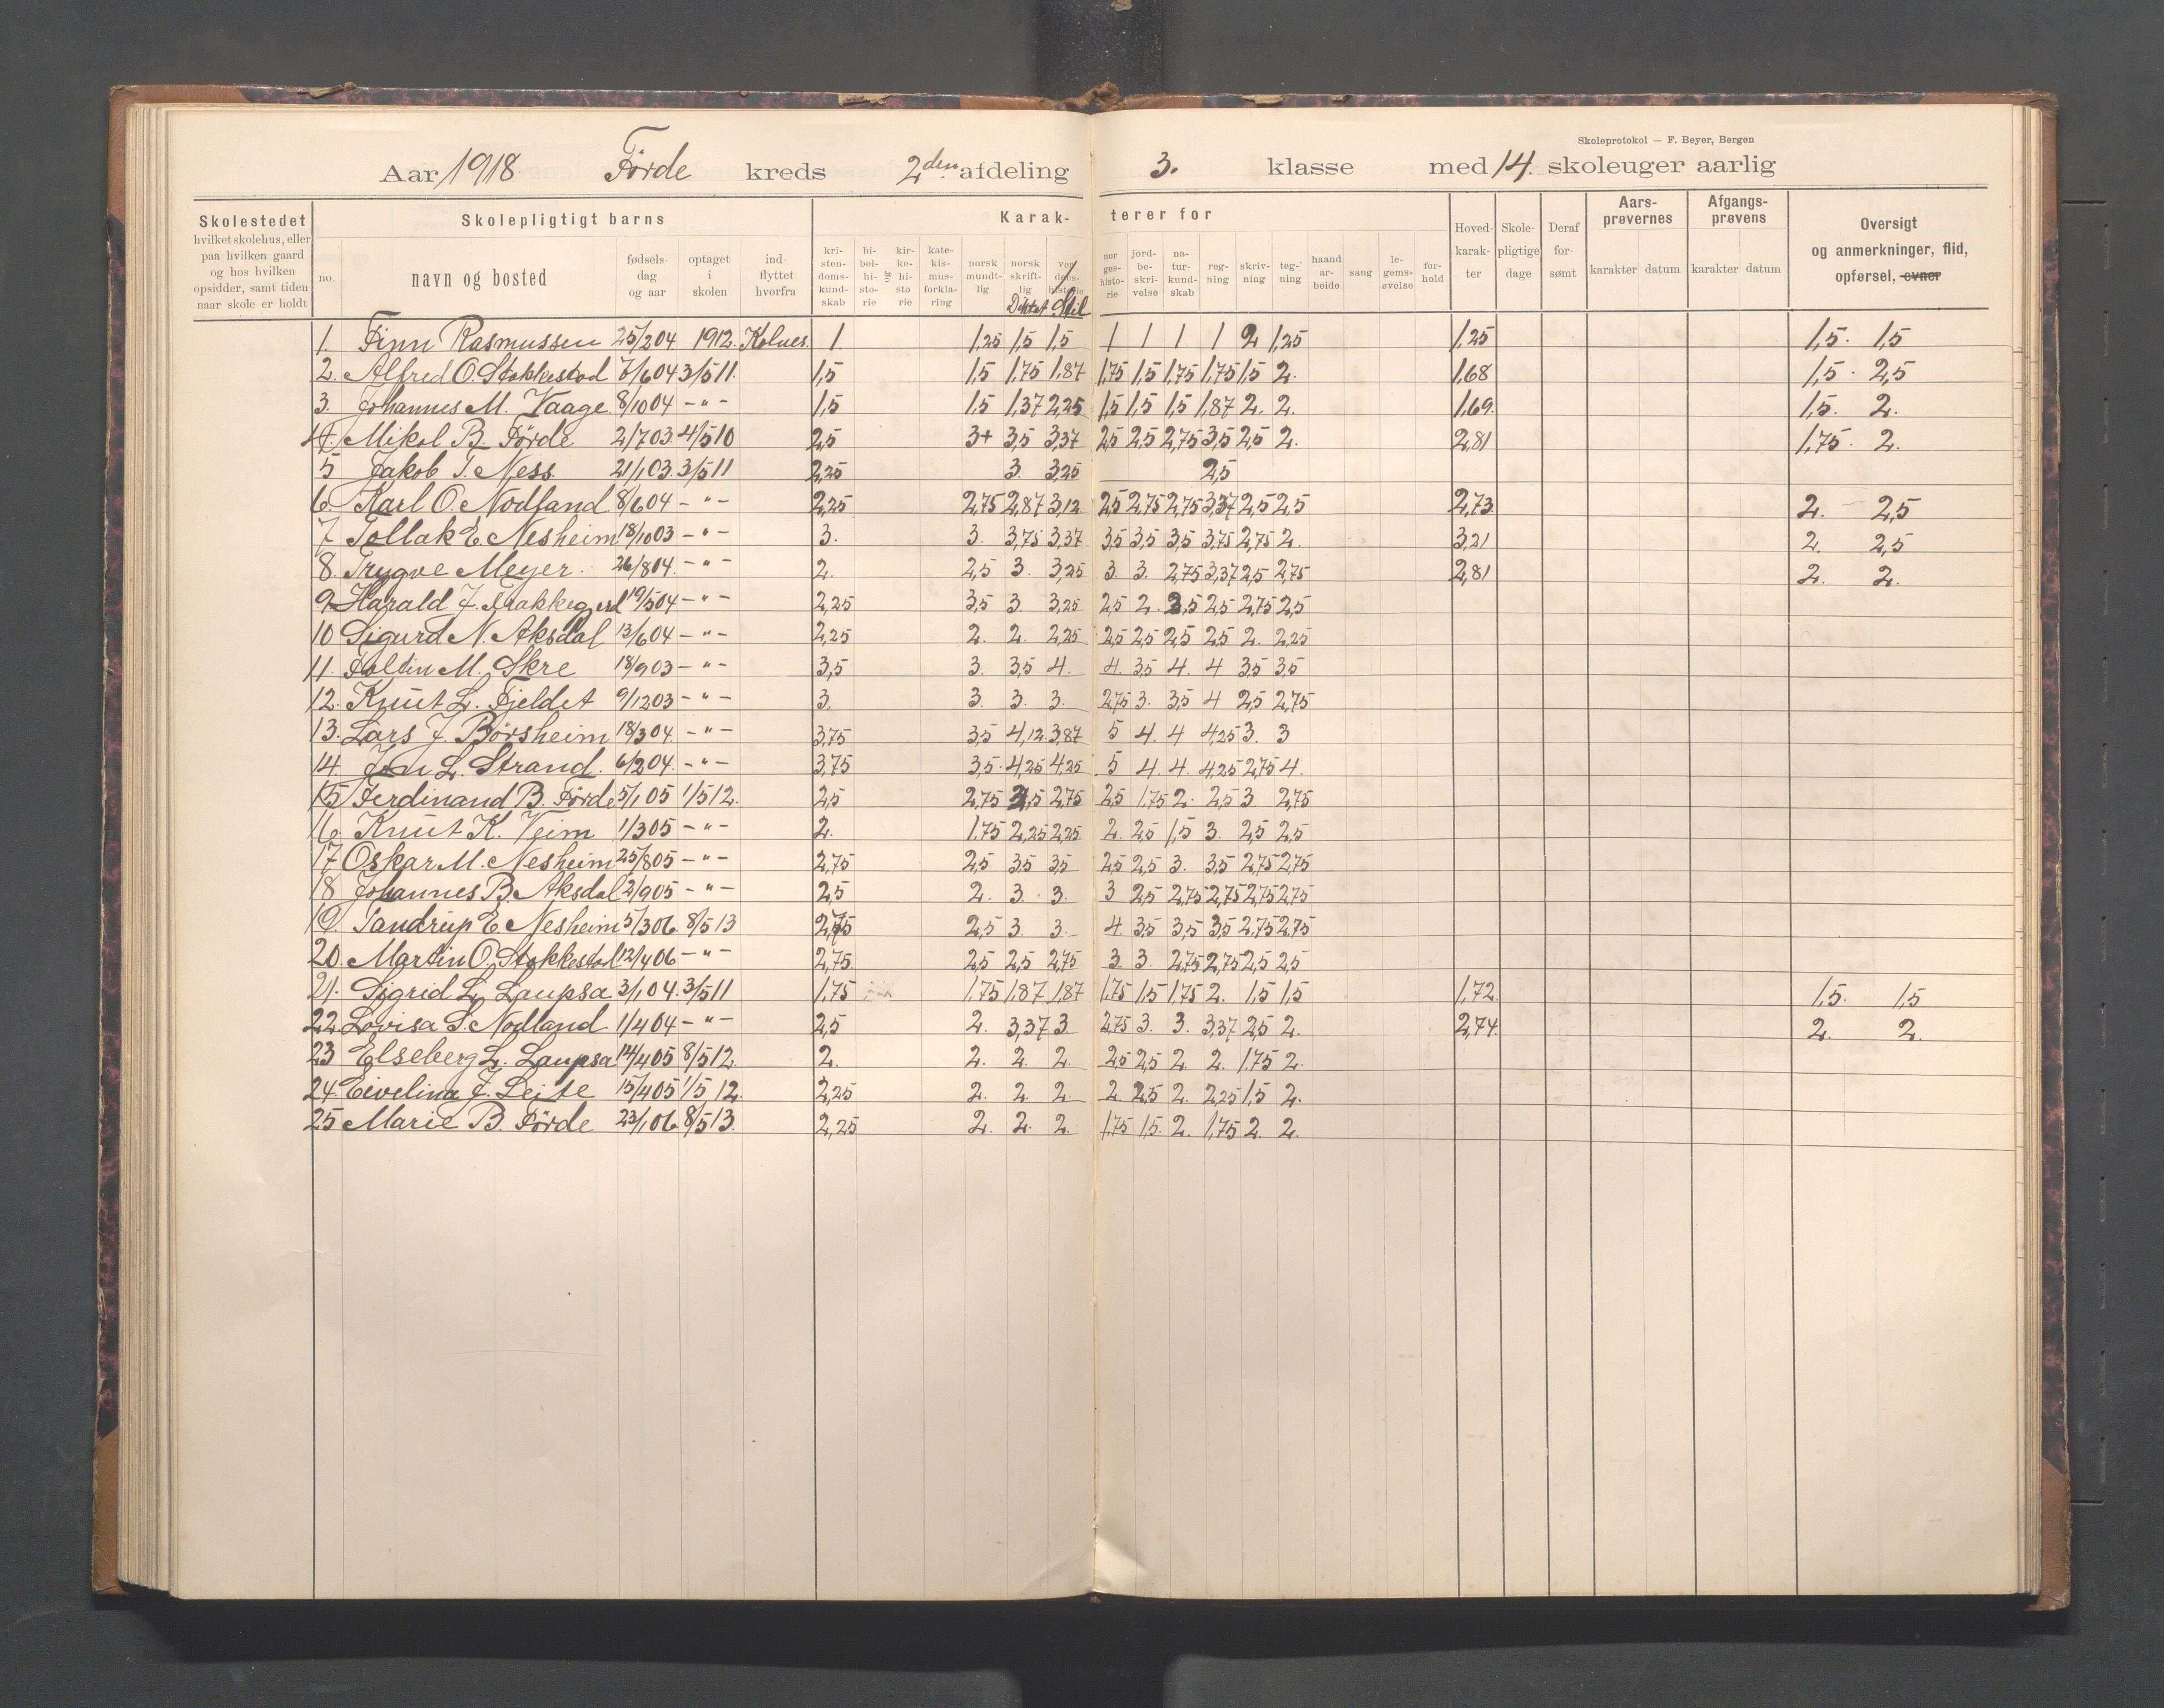 Skoleprotokol — F. Beyer, Bergen
Aar 1918 Førde kreds 2den afdeling 3. klasse med 14. skoleuger aarlig
Skolestedet hvilket skolehus, eller paa hvilken gaard og hos hvilken opsidder, samt tiden naar skole er holdt
Skolepligtigt barns
no. navn og bosted fødsels-dag og aar optaget i skolen ind-flyttet hvorfra
Karak- terer for
kri-sten-doms-kund-skab bi-bel-hi-sto-rie og kir-ke-hi-sto rie kate-kis-mus-forkla-ring norsk mundt-lig norsk skrift-lig Diktat ver dens-historie Stil nor ges-histo-rie jord-be-skri-velse na-tur-kund-skab reg-ning skriv-ning teg-ning haand ar-beide sang le-gems-øvelse for-hold
Hoved-karak-ter Skole-pligtige dage Deraf for-sømt Aars-prøvernes karakter datum Afgangs-prøvens karakter datum
Oversigt og anmerkninger, flid, opførsel, evner
1. Finn Rasmussen 25/2 04 1912. Kolnes. 1. 1,25 1,5 1,5 1 1 1 1 2 1,25 1,25 1,5. 1,5
2. Alfred O. Stakkestad 7/6 04 3/5 11. 1,5 1,5 1,75 1,87 1,75 1,5 1,75 1,75 1,5 2. 1,68 1,5. 2,5
3. Johannes M. Vaage 8/10 04 - " - 1,5 1,5 1,37 2,25 1,5 1,5 1,5 1,87 2. 2. 1,69. 1,5. 2.
4. Mikal B. Førde 2/7 03 4/5 10 2,5 3+ 3,5 3,37 2,5 2,5 2,75 3,5 2,5 2. 2,81 1,75. 2.
5 Jakob T. Ness. 21/1 03. 3/5 11 2,25 3. 3,25 2,5
6. Karl O. Nodland 8/6 04 - " - 2,25 2,75 2,87 3,12 2,5 2,75 2,75 3,37 2,5 2,5 2,73 2. 2,5
7 Tollak E. Nesheim 18/10 03 - " - 3. 3. 3,75 3,37 3,5 3,5 3,5 3,75 2,75 2. 3,21 2. 2,5
8. Trygve Meyer. 26/8 04. - " - 2. 2,5 3. 3,25 3. 3. 2,75 3,37 2,5 2,75 2,81 2. 2.
9. Harald J. 19/5 04 - " - 2,25 3,5 3. 3,25 2,5 2. 3,5 2,5 2,75 2,5
10 Sigurd N. Aksdal 13/6 04 - " - 2,25 2. 2. 2,25 2,5 2,5 2,5 2,5 2. 2,25
11. M. Skre 18/9 03 - " - 3,5 3. 3,5 4. 4. 3,5 4. 4 3,5 3,5
12. Knut L. Fjeldet 9/12 03 - " - 3. 3. 3. 3. 2,75 3. 3,5 4 2,5 2,75
13. Lars J. Børsheim 18/3 04 - " - 3,75 3,5 4,12 3,87 5 4. 4 4,25 3. 3
14. Jon L. Strand. 6/2 04. - " - 3,75 3,5. 4,25 4,25 5 4. 4. 4,25 2,75 4.
15 Ferdinand B. Førde 5/1 05 1/5 12. 2,5 2,75 2,5 2,75 2,5 1,75 2. 2,5 3 2,75
16. Knut K. Veim 1/3 05 - " - 2. 1,75 2,25 2,25 2. 2,5 1,5 3. 2,5 2,5
17. Oskar M. Nesheim 25/8 05 - " - 2,75 2,5 3,5 3,5 2,5 2,5 3. 3,5 2,75 2,75
18 Johannes B. Aksdal 2/9 05 - " - 2,5 2. 3. 3. 3 2,5 2,75 2,75 2,75 2,75
19. Tandrup E. Nesheim 5/3 06. 8/5 13 2,75 2,5 3. 3. 4. 3,5 3,5 3,5 2,75 2,75
20. Martin O. Stakkestad 12/4 06 - " - 2,75. 2,5 2,5 2,75 3. 3. 2,75 2,75 2,5 2,5
21. Sigrid L. Laupsa 3/1 04. 3/5 11 1,75 1,75 1,87 1,87 1,75 1,5 1,75 2. 1,5 1,5 1,72. 1,5. 1,5
22. Lovisa S. Nodland 1/4 04 - " - 2,5 2. 3,37 3 2,75 3. 3. 3,37 2,5 2. 2,74. 2. 2.
23 Elseberg L. Laupsa 14/4 05 8/5 12. 2. 2. 2. 2. 2,5 2,5 2. 2. 1,75 2.
24. Eivelina J. Leite 15/4 05 1/5 12. 2,25 2. 2. 2. 2. 2,5 2. 2,25 1,5 2.
25 Marie B. Førde 23/1 06 8/5 13. 2,25 2. 2. 2. 1,75 1,5. 2. 1,75 2. 2.